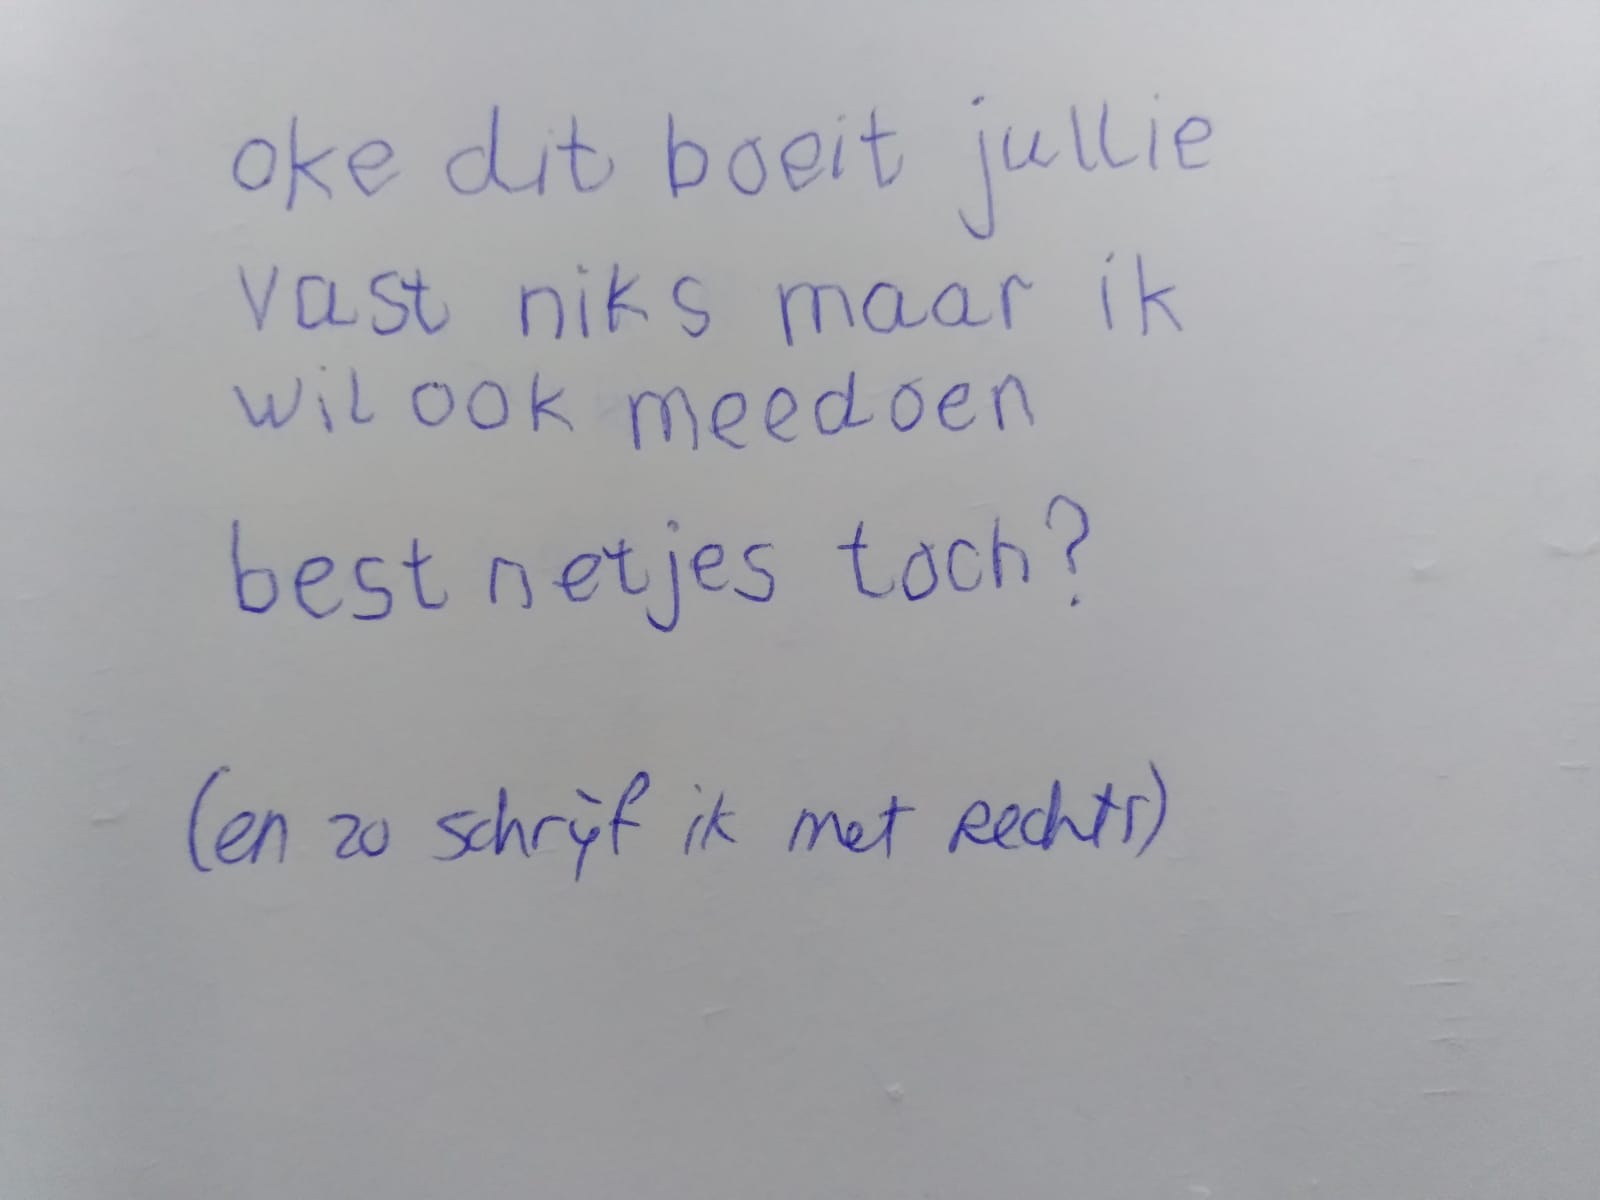 oke dit boeit jullie
vast niks maar ik
wil ook meedoen
best netjes toch?
(en zo schrijf ik met rechts)